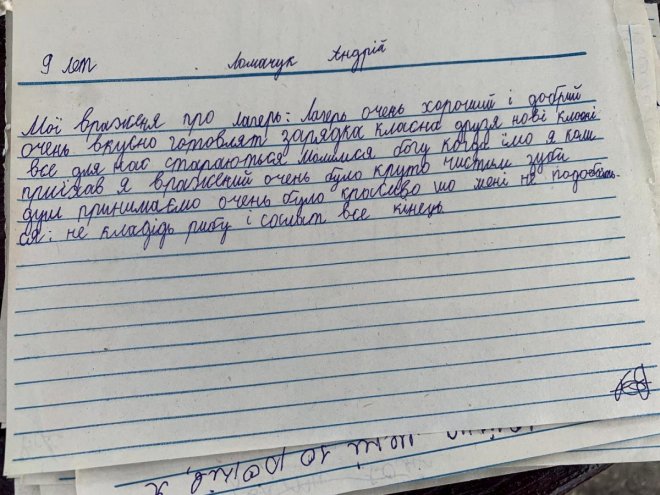 9 лет Ломачук Андрій
Мої враженя про лагерь: Лагерь очень хороший і добрий
очень вкусно готовлят зарядка класна друзя нові класні
все для нас стараються молимся богу когда їмо я коли
приїхав я вражений очень було круто чистим зуби
душ принимаємо очень було красиво шо мені не подобаль
ся: не кладідь рибу і сослыт все кінець